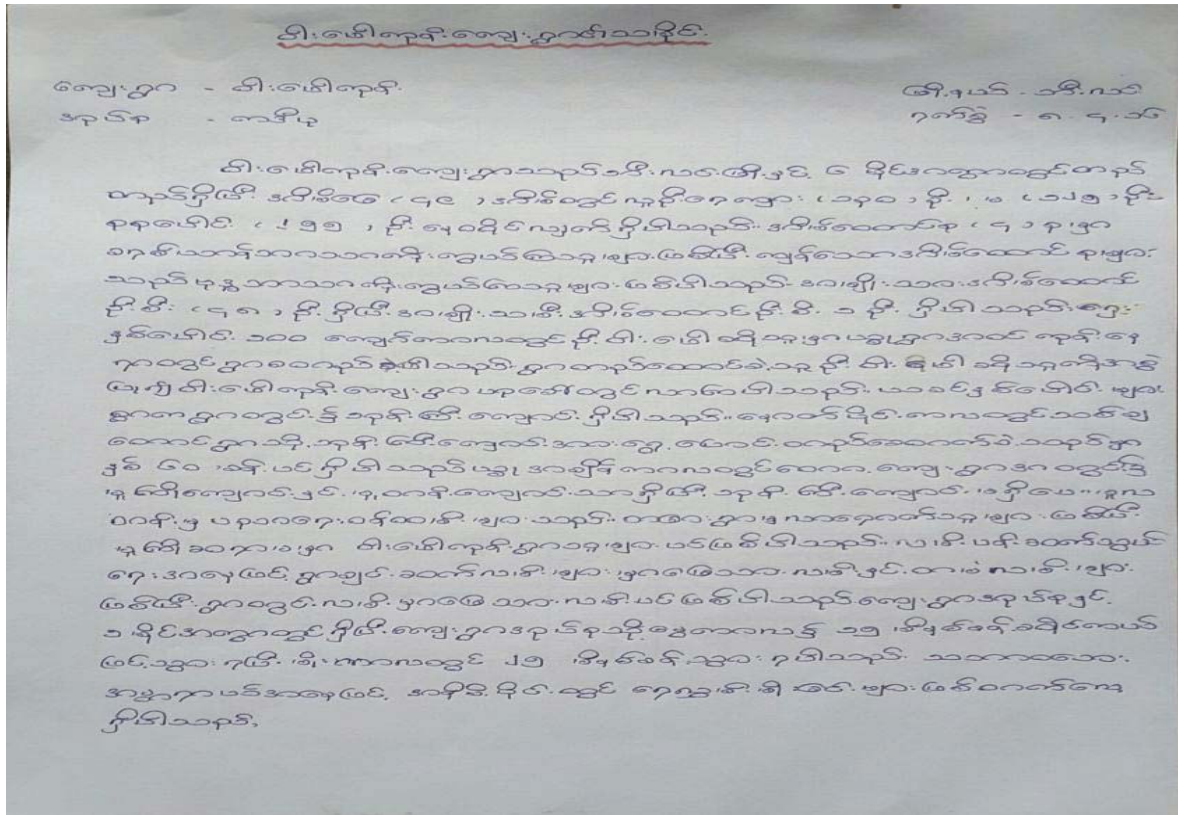 ဝါးဖေါ်ကုန်းကျေးရွာ၏သမိုင်း
ကျေးရွာ - ဝါးဖေါ်ကုန်း မြို့နယ် - သီးလင်း
အုပ်စု - ရက်စွဲ - ၈.၄.၁၆
ဝါးဖေါ်ကုန်းကျေးရွာသည် မြို့နှင့် ၆ မိုင်အကွာတွင်တည်
တည်ရှိပြီး အိမ်ခြေ (၄၉) အိမ်တွင်လူဦးရေကျား (၁၃၀) ဦး၊ မ (၁၂၅) ဦး
စုစုပေါင်း (၂၅၅) ဦး နေထိုင်လျက်ရှိပါသည်။ အိမ်ထောင်စု (၄) စုမှာ
ခရစ်ယာန်ဘာသာကိုးကွယ်ကြသူများဖြစ်ပြီး ကျန်သောအိမ်ထောင်စုများ
သည် ဗုဒ္ဓဘာသာကိုးကွယ်သောသူများဖြစ်ပါသည်။ အမျိုးသားအိမ်ထောင်
ဦးစီး (၄၈) ဦးရှိပြီး အမျိုးသမီးအိမ်ထောင်ဦးစီး ၁ ဦးရှိပါသည်။ ရှေး
နှစ်ပေါင်း ၁၀၀ ကျော်ကာလတွင် ဦးဝါးဖေါ်ဆိုသူမှာယခုရွာအထင်ကုန်းနေ
ရာတွင်ရွာစတည်ခဲ့ပါသည်။ ရွာတည်ထောင်ခဲ့သူ ဦးဝါးဖေါ်ဆိုသူကိုအစွဲ
ပြု၍ ဝါးဖေါ်ကုန်းကျေးရွာဟုခေါ်တွင်လာပါသည်။ ယခင်နှစ်ပေါင်းများ
စွာကရွာတွင် ဘုန်းကြီးကျောင်းရှိပါသည်။ နောက်ပိုင်းကာလတွင်သစ်ချ
တောင်ရွာသို့ ဘုန်းကြီးကျောင်းအားရွှေ့ပြောင်းတည်ဆောက်ခဲ့သည်မှာ
နှစ် ၆၀ ခန့်ပင်ရှိပါသည်။ ယခုအချိန်ကာလတွင် ကျေးရွာအတွင်း၌
မူကြိုကျောင်းနှင့် မူလတန်းကျောင်းသာရှိပြီး ဘုန်းကြီးကျောင်းမရှိပေ။ မူလ
တန်းမှပညာရေးဝန်ထမ်းများသည် တခြားရွာမှလာရောက်သူများဖြစ်ပြီး
မူကြိုဆရာမမှာ ဝါးဖေါ်ကုန်းရွာသူများပင်ဖြစ်ပါသည်။ လမ်းပန်းဆက်သွယ်
ရေးအနေဖြင့် ရွာချင်းဆက်လမ်းများမှာမြေသားလမ်းနှင့် လမ်းများ
ဖြစ်ပြီး ရွာတွင်းလမ်းမှာမြေသားလမ်းပင်ဖြစ်ပါသည်။ ကျေးရွာအုပ်စုနှင့်
၁ မိုင်အကွာတွင်ရှိပြီး ကျေးရွာအုပ်စုသို့နွေကာလ၌ ၁၅ မိနစ်ခန့်ဆိုင်ကယ်
ဖြင့်သွားရပြီး မိုးကာလတွင် ၂၅ မိနစ်ခန့်သွားရပါသည်။ သဘာဝဘေး
အန္တရာယ်အနေဖြင့် အနိမ့်ပိုင်းတွင် ရေလွှမ်းမိုးခြင်းများဖြစ်တတ်လေ့
ရှိပါသည်။